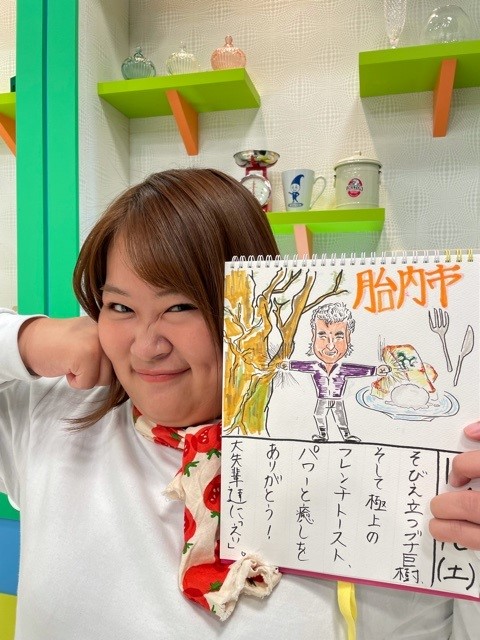 胎内市
そびえ立つブナ巨樹、
そして極上の
フレンチトースト、
パワーと癒しを
ありがとう！
大先輩達に「えい」。
(土)